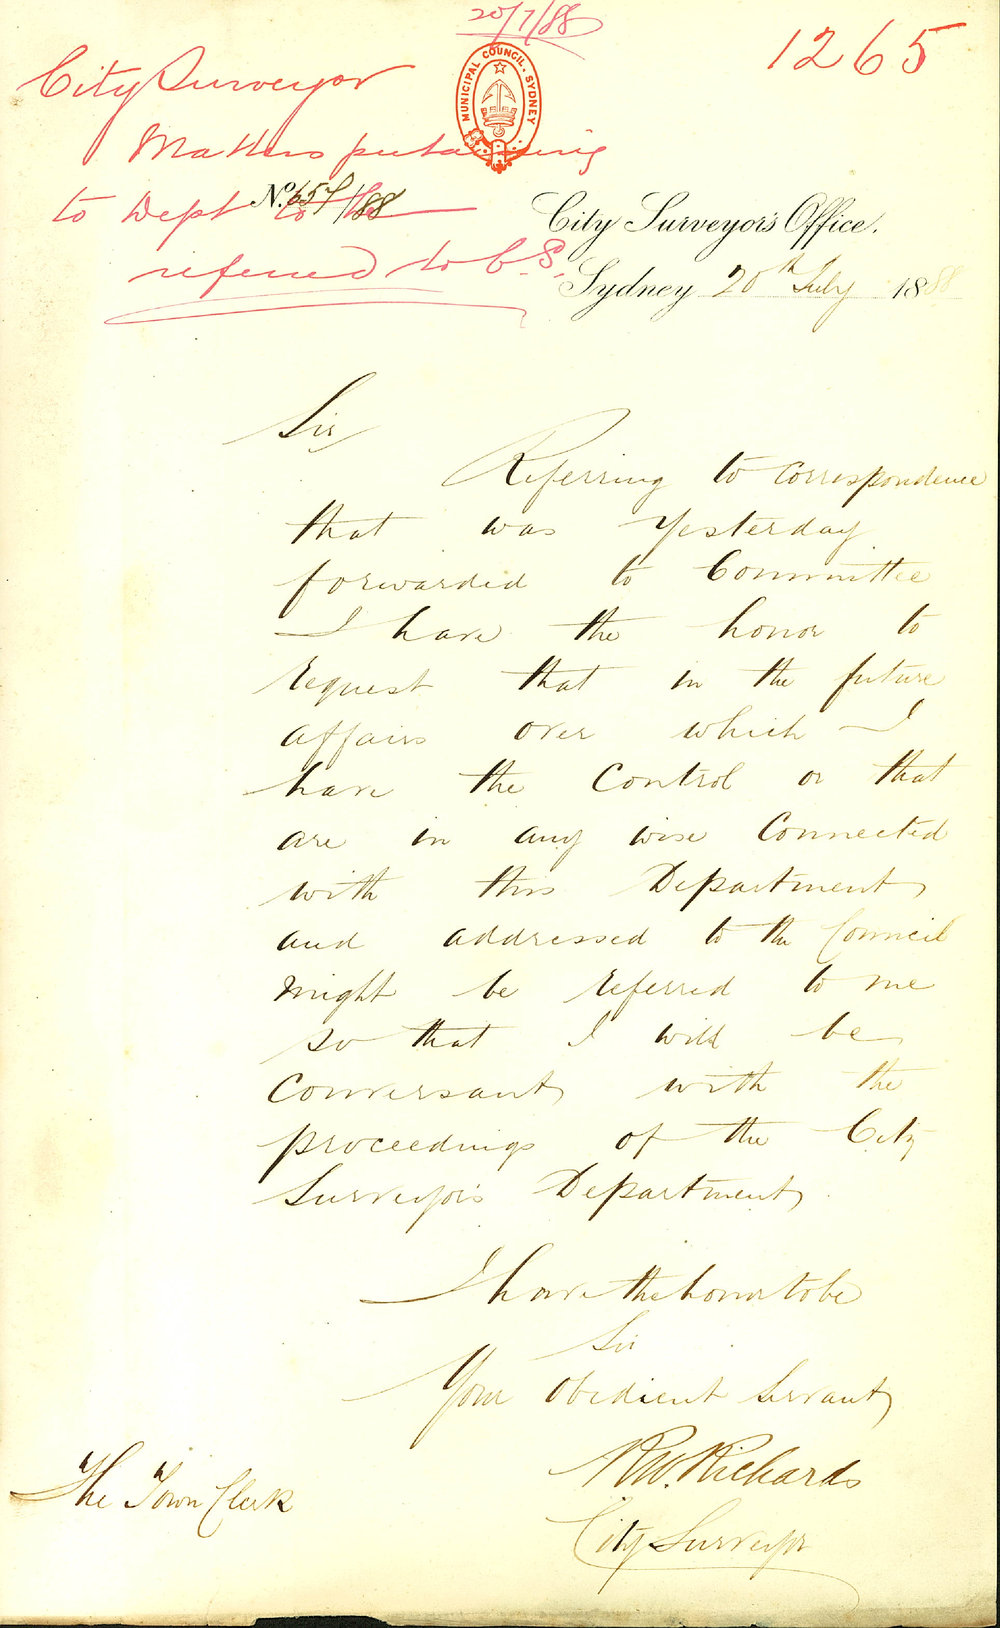 20/7/88
1265
MUNICIPAL COUNCIL · SYDNEY
City Surveyor
Matters pertaining
to Dept to be
referred to C.S.
No. 657/88
City Surveyor's Office.
Sydney 20th July 1888
Sir
Referring to correspondence
that was yesterday
forwarded to Committee
I have the honor to
request that in the future
affairs over which I
have the Control or that
are in any wise Connected
with this Department
and addressed to the Council
might be referred to me
so that I will be
Conversant with the
proceedings of the City
Surveyor's Department
I have the honor to be
Sir
Your Obedient Servant
RW. Richards
City Surveyor
The Town Clerk